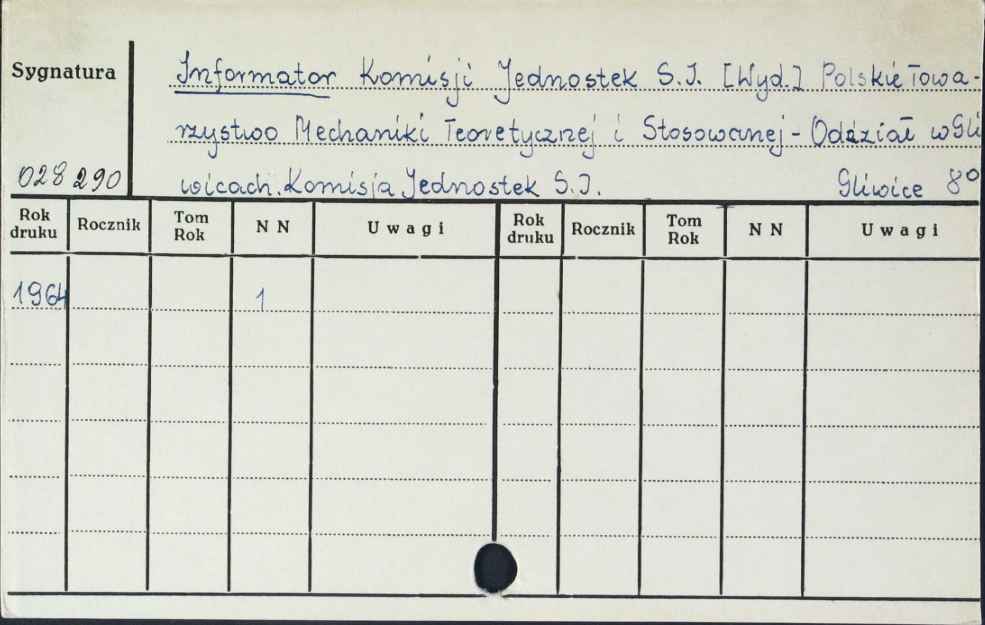 Sygnatura
Informator Komisji Jednostek S.I. [Wyd.] Polskie Towa-
rzystwo Mechaniki Teoretycznej i Stosowanej - Oddział w Gli
wicach. Komisja Jednostek S.I.
Gliwice 8°
028290
Rok druku Rocznik Tom Rok NN Uwagi Rok druku Rocznik Tom Rok NN Uwagi
1964 1